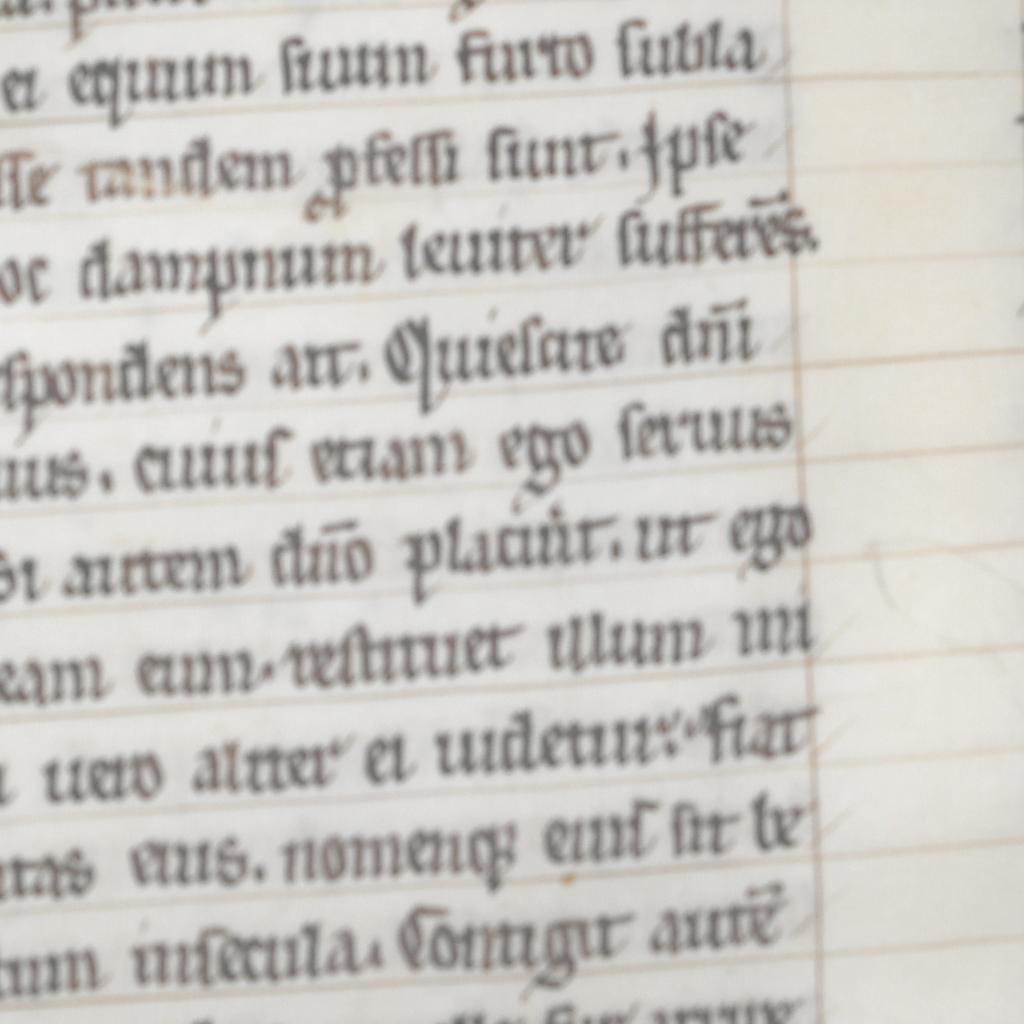 ei equum suum furto subla
sse tandem pfessi sunt. Ipse
et
oc dampnum leuiter sufferēs.
spondens ait. Quiescite dn̄i
ius. cuius etiam ego seruus
Si autem dn̄o placuit. ut ego
eam eum. restituet illum mi
uero aliter ei uidetur. fiat
ntas eius. nomenq; eius sit be
tum insecula. Contigit autē